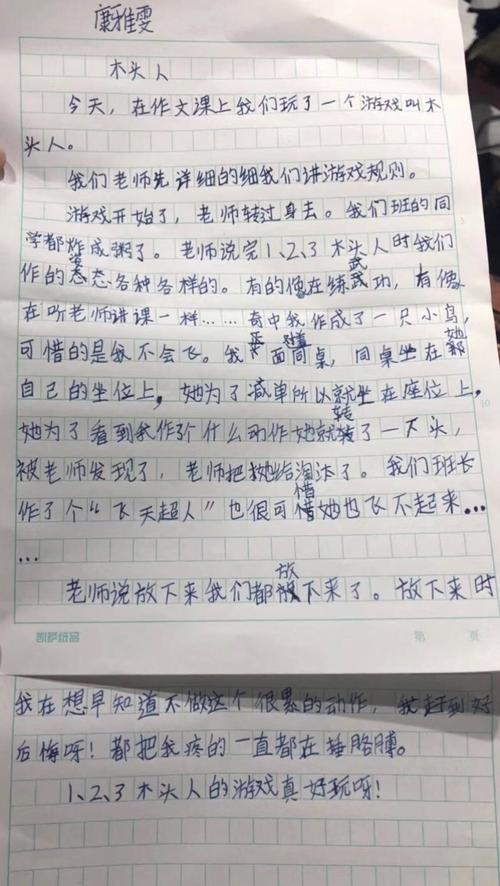 康雅雯
木头人
今天，在作文课上我们玩了一个游戏叫木
头人。
我们老师先详细的细我们讲游戏规则。
游戏开始了，老师转过身去。我们班的同
学都炸成粥了。老师说完1、2、3木头人时我们
作的姿态各种各样的。有的像在练武功，有像
在听老师讲课一样……其中我作成了一只小鸟，
可惜的是我不会飞。我对面同桌，同桌坐在她
自己的坐位上，她为了减单所以就坐在座位上，
她为了看到我作了个什么动作她就转了一下头，
被老师发现了，老师把她给淘汰了。我们班长
作了个“飞天超人”也很可惜她也飞不起来…
…
老师说放下来我们都放下来了。放下来时
凯萨纸品 第 頁
我在想早知道不做这个很累的动作，我赶到好
后悔呀！都把我疼的一直都在捶胳膊。
1、2、3木头人的游戏真好玩呀！